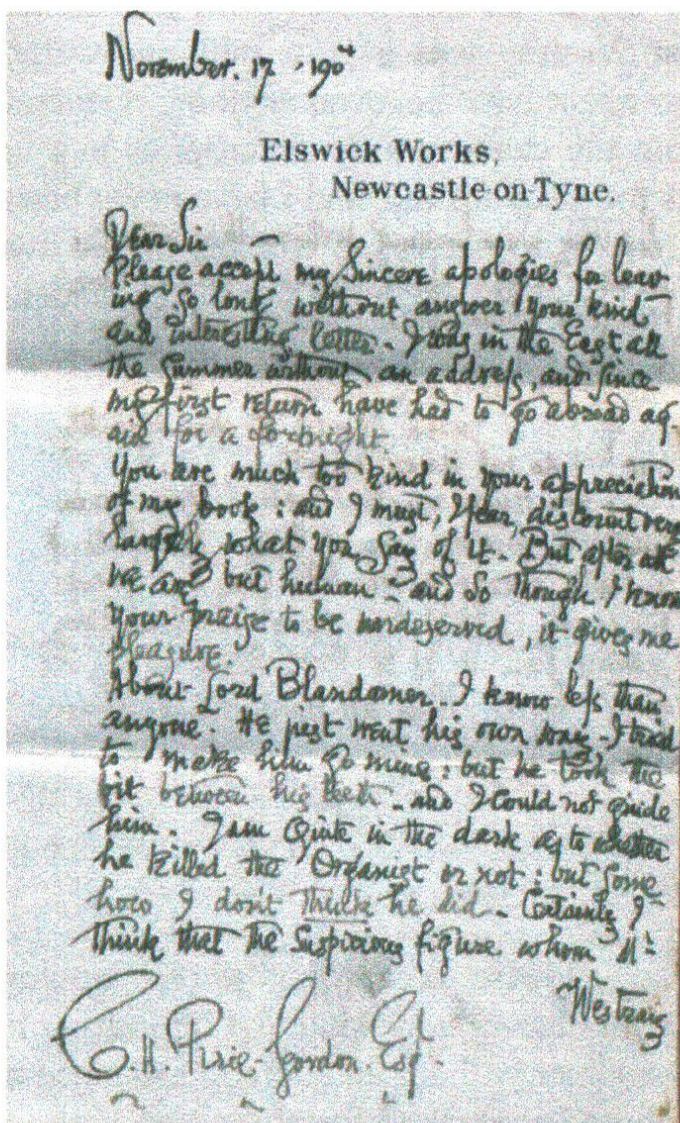 November. 17. 1904
Elswick Works,
Newcastle on Tyne.
Dear Sir
Please accept my sincere apologies for leav
ing so long without answer your kind
and interesting letter. I was in the East all
the summer without an address, and since
my first return have had to go abroad ag-
ain for a fortnight.
You are much too kind in your appreciation
of my book: and I must, I fear, discount very
largely what you say of it. But after all
we are but human - and so though I know
your praise to be undeserved, it gives me
pleasure.
About Lord Blandamer. I know less than
anyone. He just went his own way - I tried
to make him go mine: but he took the
bit between his teeth - and I could not guide
him. I am quite in the dark as to whether
he killed the Organist or not: but some
how I don't think he did. Certainly I
think that the suspicious figure whom Mr
Westray
C. H. Pirie-Gordon. Esq.